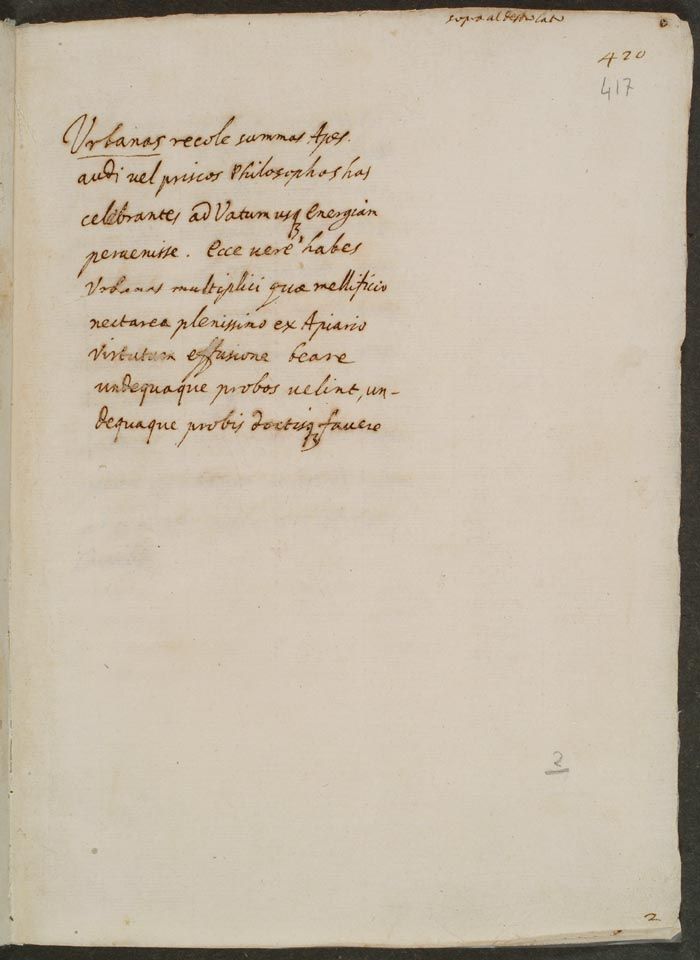 sopra al destro lato
420
417
Urbanas recole summas Apes.
audi vel priscos Philosophos has
celebrantes ad Vatum usq₃ Energian
pervenisse. Ecce vere habes
Urbanas multiplici quae mellificio
nectarea plenissimo ex Apiario
Virtutum effusione beare
undequaque probos velint, un-
dequaque probis doctisq₃ favere
2
2